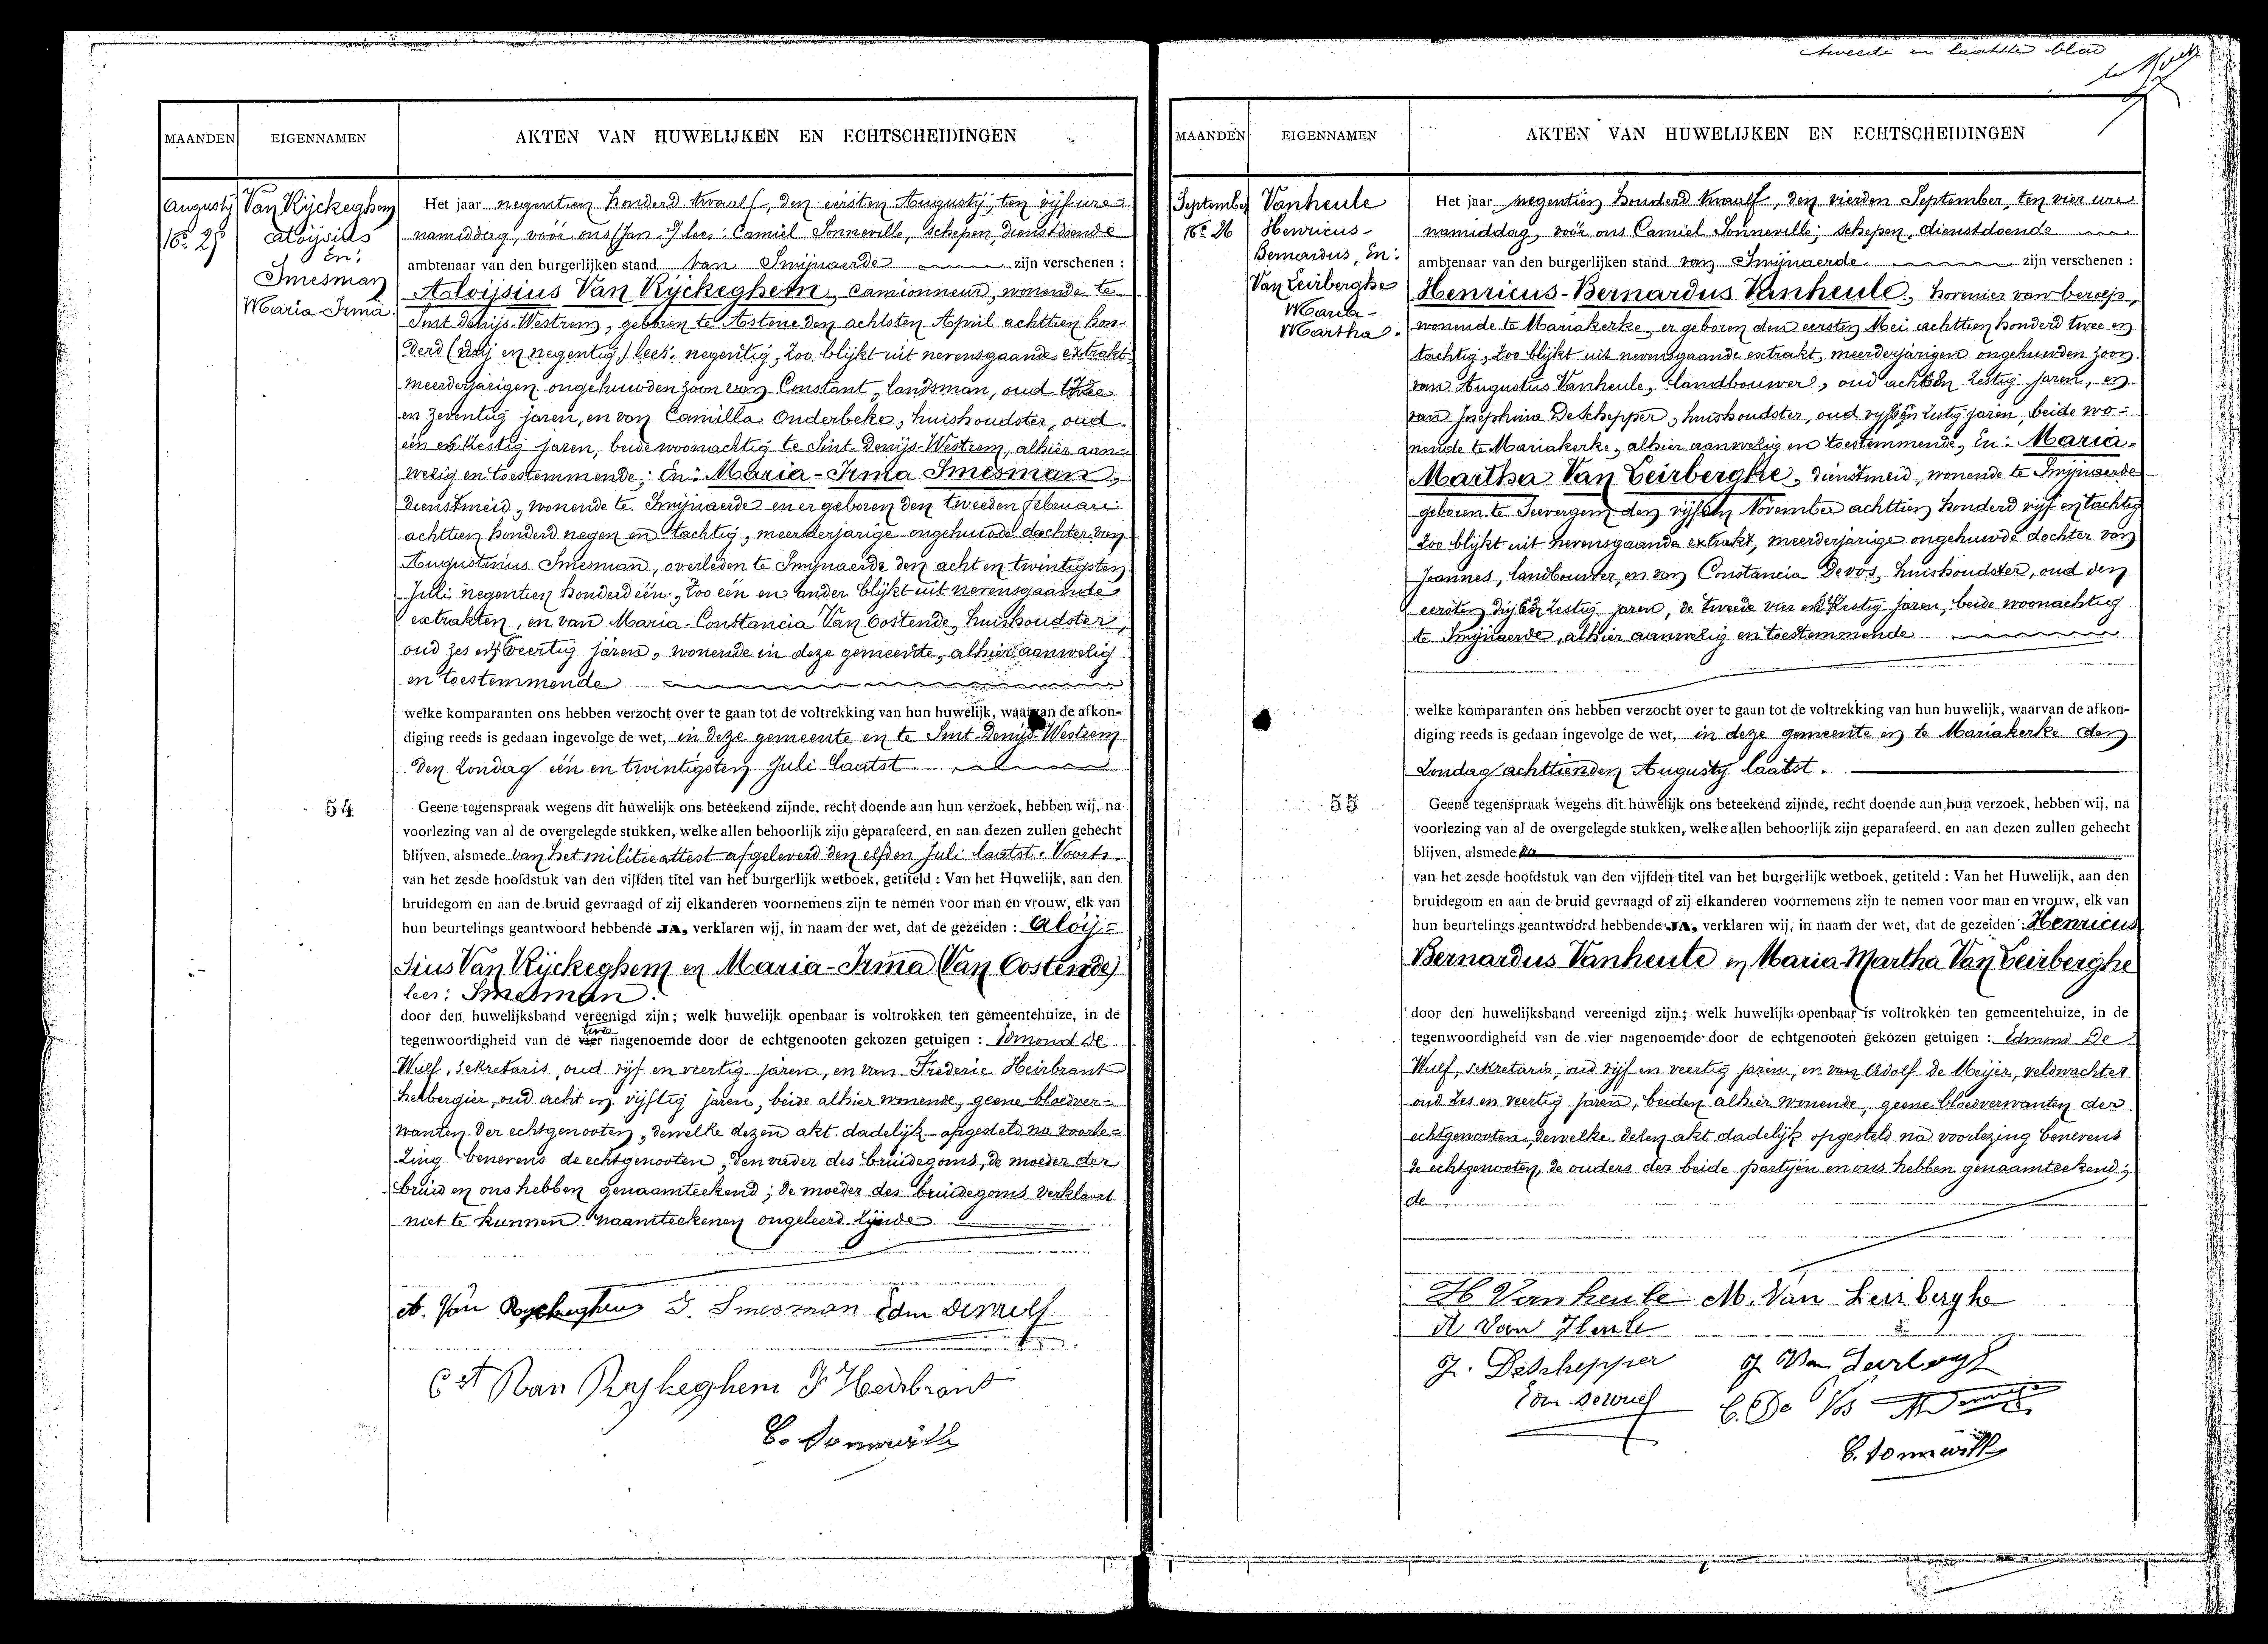 tweede en laatste blad
MAANDEN
EIGENNAMEN
AKTEN VAN HUWELIJKEN EN ECHTSCHEIDINGEN
Augustij
Nº 25
Van Rÿckeghem
Aloÿsius
En:
Smesman
Maria-Irma
54
Het jaar negentien honderd twaalf, den eersten Augustij, ten vijf ure
namiddag, vóór ons (Jan) lees: Camiel Sonneville, schepen, dienstdoende
ambtenaar van den burgerlijken stand van Smijnaerde zijn verschenen :
Aloÿsius Van Rÿckeghem, camionneur, wonende te
Sint Denijs-Westrem, geboren te Astene den achtsten April achttien hon-
derd (drij en negentig) lees: negentig, zoo blijkt uit nevensgaande extrakt,
meerderjarigen ongehuwden zoon van Constant, landsman, oud twee
en zeventig jaren, en van Camilla Onderbeke, huishoudster, oud
één en zestig jaren, beide woonachtig te Sint-Denijs-Westrem, alhier aan-
wezig en toestemmende; En: Maria-Irma Smesman,
dienstmeid, wonende te Smijnaerde en er geboren den tweeden Februari
achttien honderd negen en tachtig, meerderjarige ongehuwde dochter van
Augustinus Smesman, overleden te Smijnaerde den acht en twintigsten
Juli negentien honderd één, zoo een en ander blijkt uit nevensgaande
extrakten, en van Maria-Constancia Van Oostende, huishoudster,
oud zes en veertig jaren, wonende in deze gemeente, alhier aanwezig
en toestemmende
welke komparanten ons hebben verzocht over te gaan tot de voltrekking van hun huwelijk, waarvan de afkon-
diging reeds is gedaan ingevolge de wet, in deze gemeente en te Sint-Denijs-Westrem
den Zondag één en twintigsten Juli laatst.
Geene tegenspraak wegens dit huwelijk ons beteekend zijnde, recht doende aan hun verzoek, hebben wij, na
voorlezing van al de overgelegde stukken, welke allen behoorlijk zijn geparafeerd, en aan dezen zullen gehecht
blijven, alsmede van het militieattest afgeleverd den elfden Juli laatst. Voorts
van het zesde hoofdstuk van den vijfden titel van het burgerlijk wetboek, getiteld : Van het Huwelijk, aan den
bruidegom en aan de bruid gevraagd of zij elkanderen voornemens zijn te nemen voor man en vrouw, elk van
hun beurtelings geantwoord hebbende JA, verklaren wij, in naam der wet, dat de gezeiden : Aloij-
sius Van Rÿckeghem en Maria-Irma (Van Oostende)
lees: Smesman.
door den huwelijksband vereenigd zijn; welk huwelijk openbaar is voltrokken ten gemeentehuize, in de
twee
tegenwoordigheid van de vier nagenoemde door de echtgenooten gekozen getuigen : Edmond De
Wulf, sekretaris, oud vijf en veertig jaren, en van Frederic Heirbrant
herbergier, oud acht en vijftig jaren, beide alhier wonende, geene bloedver-
wanten der echtgenooten, dewelke dezen akt dadelijk opgesteld na voorle-
zing benevens de echtgenooten, den vader des bruidegoms, de moeder der
bruid en ons hebben genaamteekend; de moeder des bruidegoms verklaart
niet te kunnen naamteekenen ongeleerd zijnde
A. Van Ryckeghem I. Smesman Edm Dewulf
Cst Van Ryckeghem F. Heirbrant
C. Sonneville
MAANDEN
EIGENNAMEN
AKTEN VAN HUWELIJKEN EN ECHTSCHEIDINGEN
September
Nº 26
Vanheule
Henricus-
Bernardus, En:
Van Leirberghe
Maria-
Martha.
55
Het jaar negentien honderd twaalf, den vierden September, ten vier ure
namiddag, vóór ons Camiel Sonneville, schepen, dienstdoende
ambtenaar van den burgerlijken stand van Smijnaerde zijn verschenen :
Henricus-Bernardus Vanheule, hovenier van beroep,
wonende te Mariakerke, er geboren den eersten Mei achttien honderd twee en
tachtig, zoo blijkt uit nevensgaande extrakt, meerderjarigen ongehuwden zoon
van Augustus Vanheule, landbouwer, oud acht en zestig jaren, en
van Josephina Deschepper, huishoudster, oud vijf en zestig jaren, beide wo-
nende te Mariakerke, alhier aanwezig en toestemmende, En: Maria-
Martha Van Leirberghe, dienstmeid, wonende te Smijnaerde
geboren te Seevergem den vijfden November achttien honderd vijf en tachtig
zoo blijkt uit nevensgaande extrakt, meerderjarige ongehuwde dochter van
Joannes, landbouwer, en van Constancia Devos, huishoudster, oud den
eersten drij en zestig jaren, de tweede vier en zestig jaren, beide woonachtig
te Smijnaerde, alhier aanwezig en toestemmende
welke komparanten ons hebben verzocht over te gaan tot de voltrekking van hun huwelijk, waarvan de afkon-
diging reeds is gedaan ingevolge de wet, in deze gemeente en te Mariakerke den
Zondag achttienden Augusty laatst.
Geene tegenspraak wegens dit huwelijk ons beteekend zijnde, recht doende aan hun verzoek, hebben wij, na
voorlezing van al de overgelegde stukken, welke allen behoorlijk zijn geparafeerd, en aan dezen zullen gehecht
blijven, alsmede
van het zesde hoofdstuk van den vijfden titel van het burgerlijk wetboek, getiteld : Van het Huwelijk, aan den
bruidegom en aan de bruid gevraagd of zij elkanderen voornemens zijn te nemen voor man en vrouw, elk van
hun beurtelings geantwoord hebbende JA, verklaren wij, in naam der wet, dat de gezeiden : Henricus
Bernardus Vanheule en Maria-Martha Van Leirberghe
door den huwelijksband vereenigd zijn; welk huwelijk openbaar is voltrokken ten gemeentehuize, in de
tegenwoordigheid van de vier nagenoemde door de echtgenooten gekozen getuigen : Edmond De
Wulf, sekretaris, oud vijf en veertig jaren, en van Adolf De Meijer, veldwachter
oud zes en veertig jaren, beiden alhier wonende, geene bloedverwanten der
echtgenooten, dewelke dezen akt dadelijk opgesteld na voorlezing benevens
de echtgenooten, de ouders der beide partijen en ons hebben genaamteekend;
de
H Vanheule M. Van Leirberghe
A Van Heule
J. Deschepper J Van Leirbergh
Edm Dewulf C. De Vos
C. Sonneville